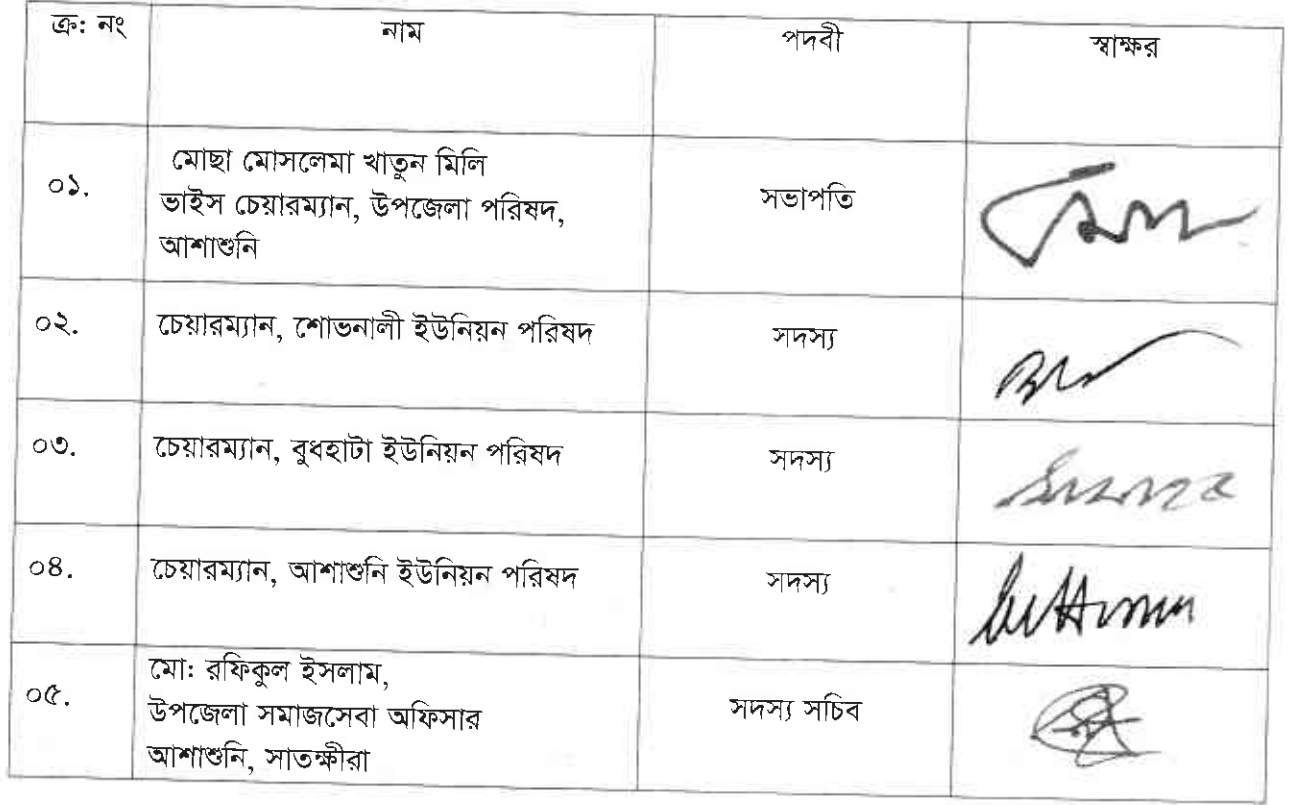 ক্র: নং নাম পদবী স্বাক্ষর
০১. মোছা মোসলেমা খাতুন মিলি
ভাইস চেয়ারম্যান, উপজেলা পরিষদ,
আশাশুনি সভাপতি
০২. চেয়ারম্যান, শোভনালী ইউনিয়ন পরিষদ সদস্য
০৩. চেয়ারম্যান, বুধহাটা ইউনিয়ন পরিষদ সদস্য
০৪. চেয়ারম্যান, আশাশুনি ইউনিয়ন পরিষদ সদস্য
০৫. মো: রফিকুল ইসলাম,
উপজেলা সমাজসেবা অফিসার
আশাশুনি, সাতক্ষীরা সদস্য সচিব